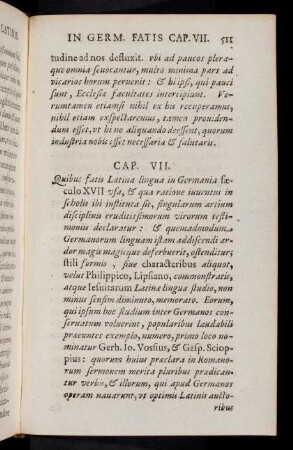 LATINÆ
IN GERM. FATIS CAP. VII. 511
tudine ad nos defluxit. vbi ad paucos plera-
que omnia seuocantur, multo minima pars ad
vicarios horum peruenit: & hi ipsi, qui pauci
sunt, Ecclesiæ facultates intercipiunt. Ve-
rumtamen etiamsi nihil ex his recuperamus,
nihil etiam exspectaremus, tamen prouiden-
dum esset, vt hi ne aliquando deessent, quorum
industria nobis esset necessaria & salutaris.
CAP. VII.
Quibus fatis Latina lingua in Germania sæ-
culo XVII vsa, & qua ratione iuuentus in
scholis ibi instituta sit, singularum artium
disciplinis eruditissimorum virorum testi-
moniis declaratur: & quemadmodum
Germanorum linguam istam addiscendi ar-
dor magis magisque deferbuerit, ostenditur;
stili formis, siue characteribus aliquot,
velut Philippico, Lipsiano, commonstratis,
atque Iesuitarum Latinæ linguæ studio, non
minus sensim diminuto, memorato. Eorum,
qui ipsum hoc studium inter Germanos con-
seruatum voluerint, popularibus laudabili
praeuntes exemplo, numero, primo loco no-
minatur Gerh. Io. Vossius, & Gasp. Sciop-
pius: quorum huius præclara in Romano-
rum sermonem merita pluribus prædican-
tur verbis, & illorum, qui apud Germanos
operam nauarunt, vt optimis Latinis aucto-
ribus